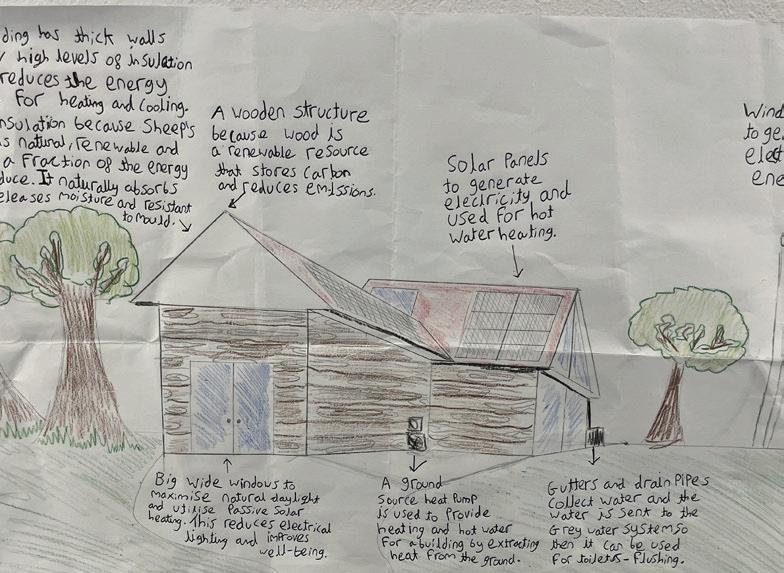 ding has thick walls
high levels of insulation
reduces the energy
For heating and cooling.
nsulation because Sheep's
s natural, renewable and
a Fraction of the energy
duce. It naturally absorbs
eleases moisture and resistant
to mould.
A wooden structure
because wood is
a renewable resource
that stores Carbon
and reduces emissions.
Solar Panels
to generate
electricity and
used for hot
Water heating.
Wind
to ge
elect
ene
Big wide windows to
maximise natural daylight
and utilise Passive Solar
heating. This reduces electrical
lighting and improves
well-being.
A ground
Source heat Pump
is used to Provide
heating and hot water
For a building by extracting
heat From the ground.
Gutters and drain Pipes
Collect water and the
Water is sent to the
Grey water system so
then it can be used
For toilets - Flushing.